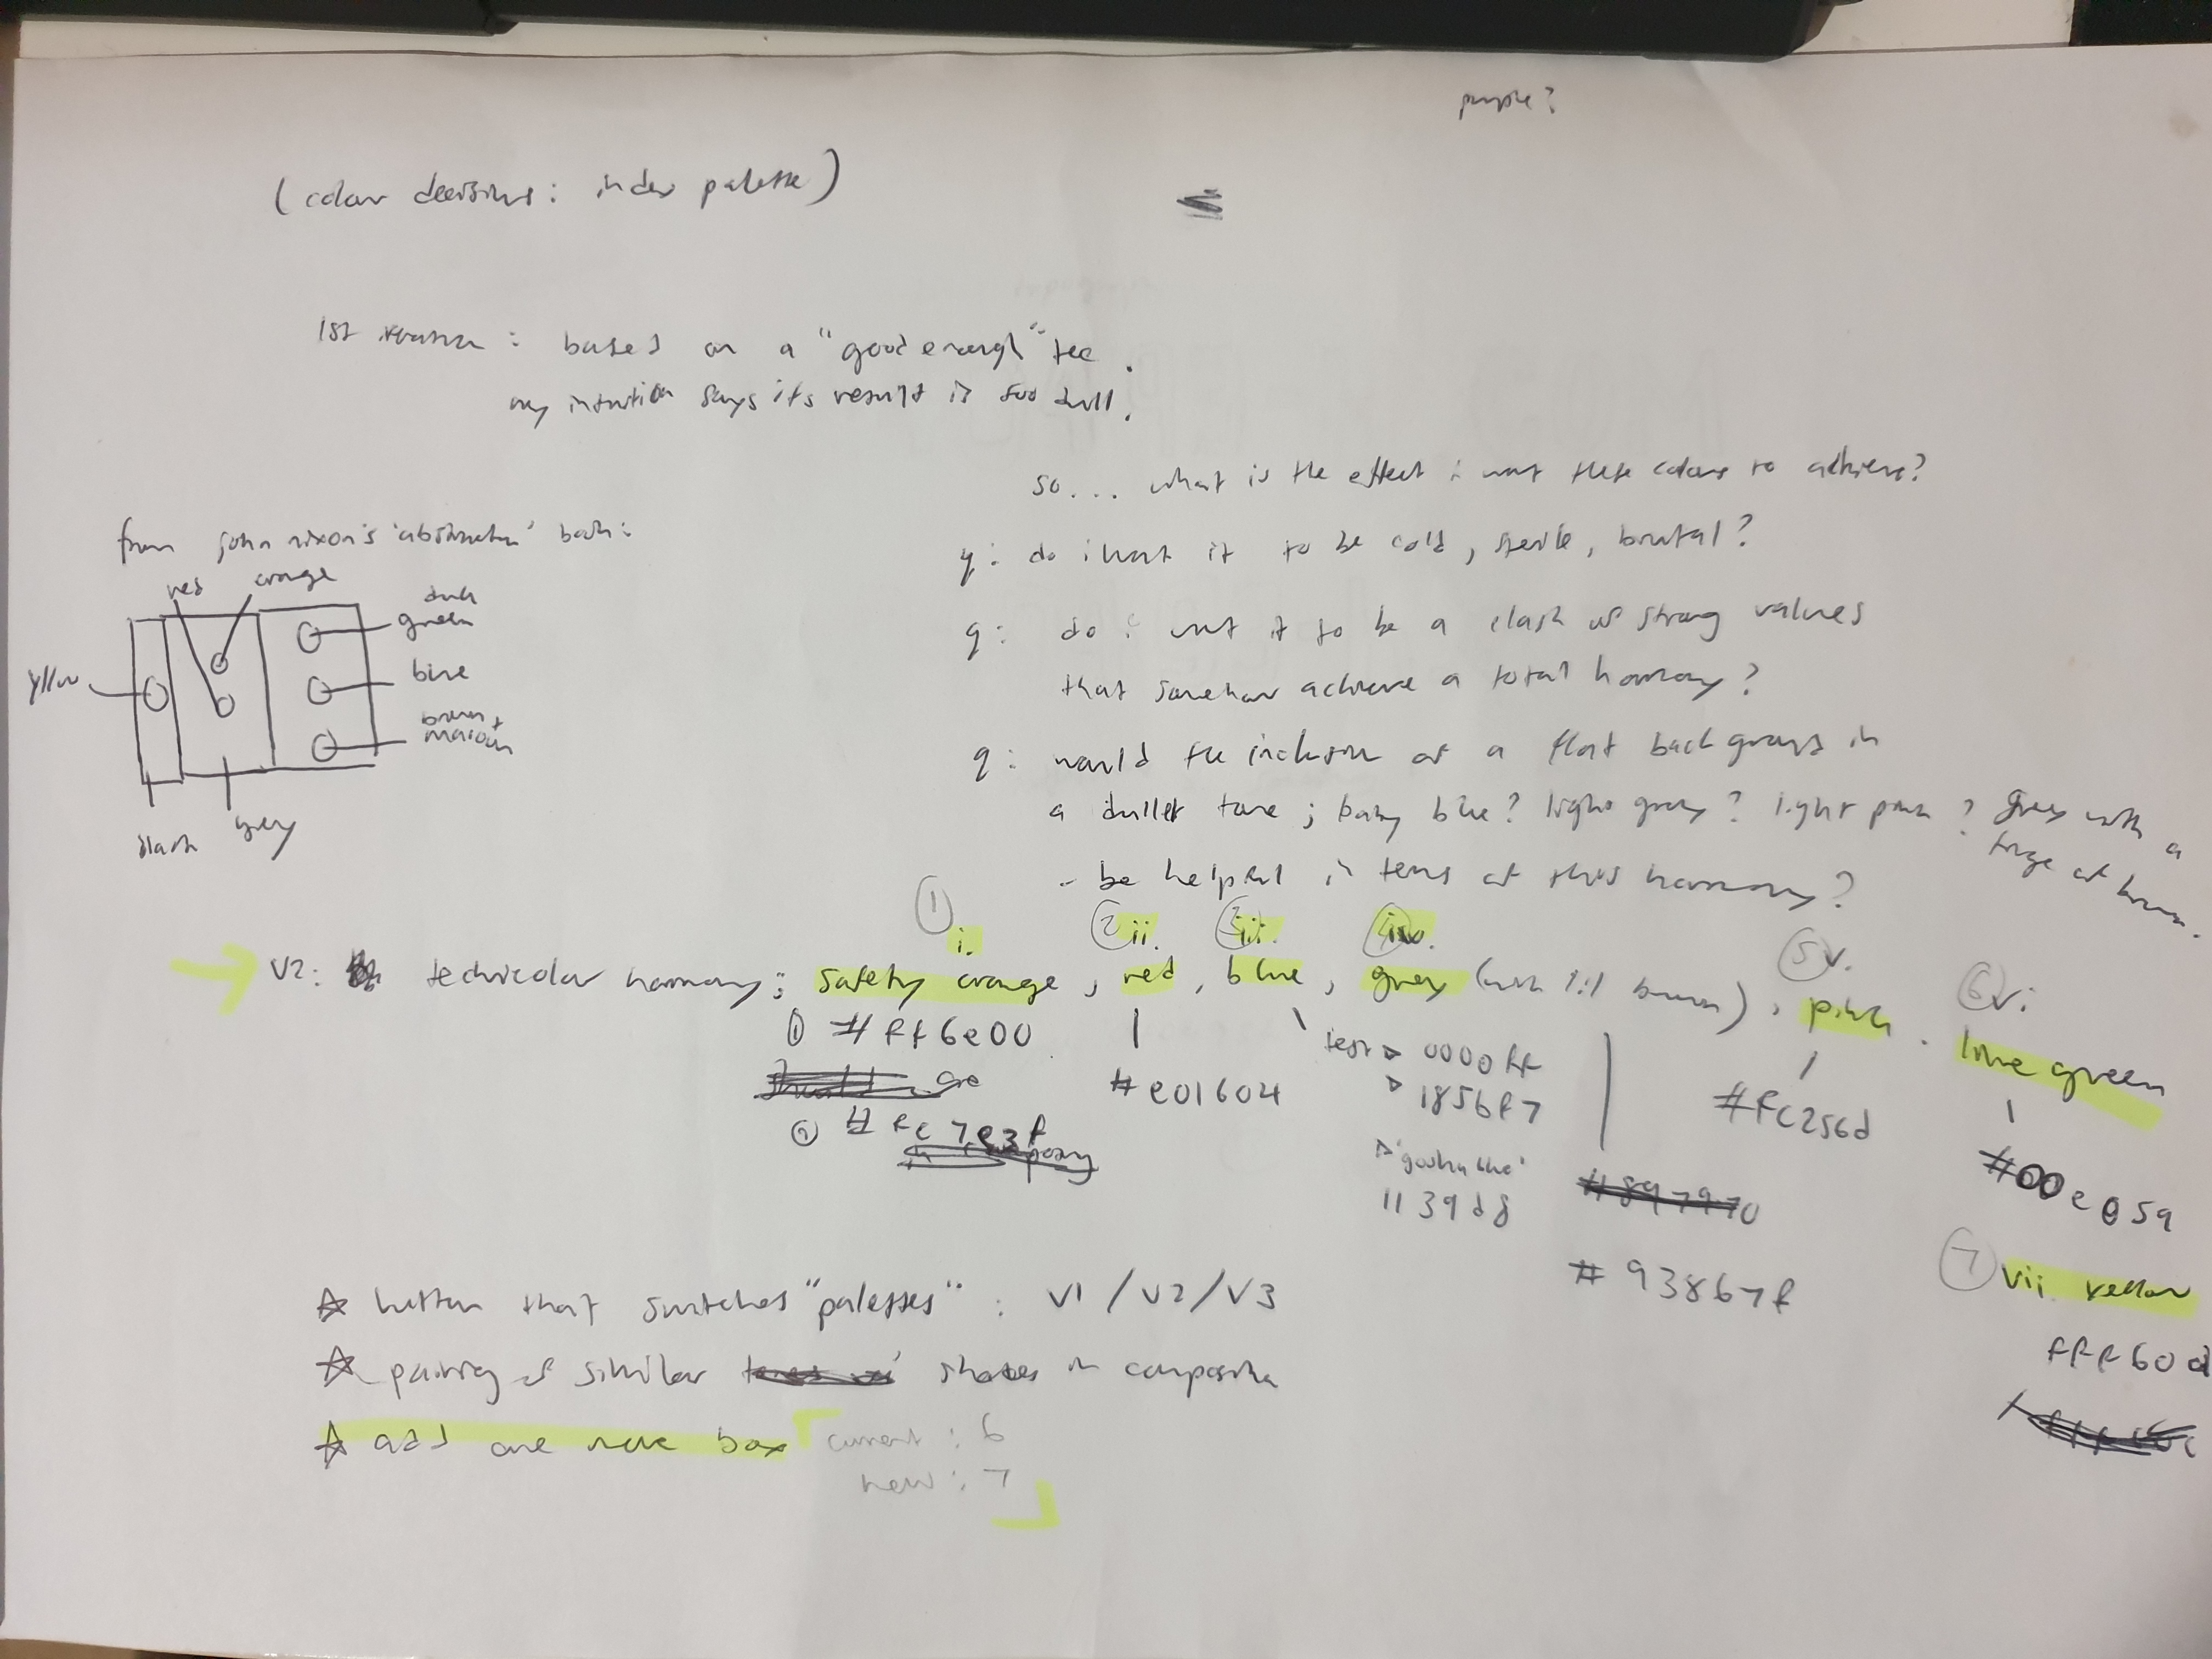 purple?
(colour decisions: index palette)
1st iteration: based on a "good enough" tee.
my intuition says its result is too dull.
so... what is the effect i want these colours to achieve?
q: do i want it to be cold, sterile, brutal?
q: do i want it to be a clash of strong values
that somehow achieve a total harmony?
q: would the inclusion of a flat background in
a duller tone; baby blue? light grey? light pink? grey with a
tinge of brown.
- be helpful in terms of this harmony?
from john nixon's 'abstraction' book:
red orange
dark
green
yellow
blue
brown +
maroon
black grey
① i. ② ii. ③ iii. ④ iv. ⑤ v. ⑥ vi
V2: technicolor harmony; safety orange, red, blue, grey (with 1:1 brown), pink. lime green
① #ff6e00
② #fc7e3f
#e01604
test ▷ 0000ff
▷ 185bf7
▷ 'gosha blue'
1139d8
#897970
#93867f
#fc256d
#00e059
⑦ vii. yellow
fff60d
☆ button that switches "palettes": V1 / V2 / V3
☆ pairing of similar shades in composition
☆ add one more box
current: 6
new: 7